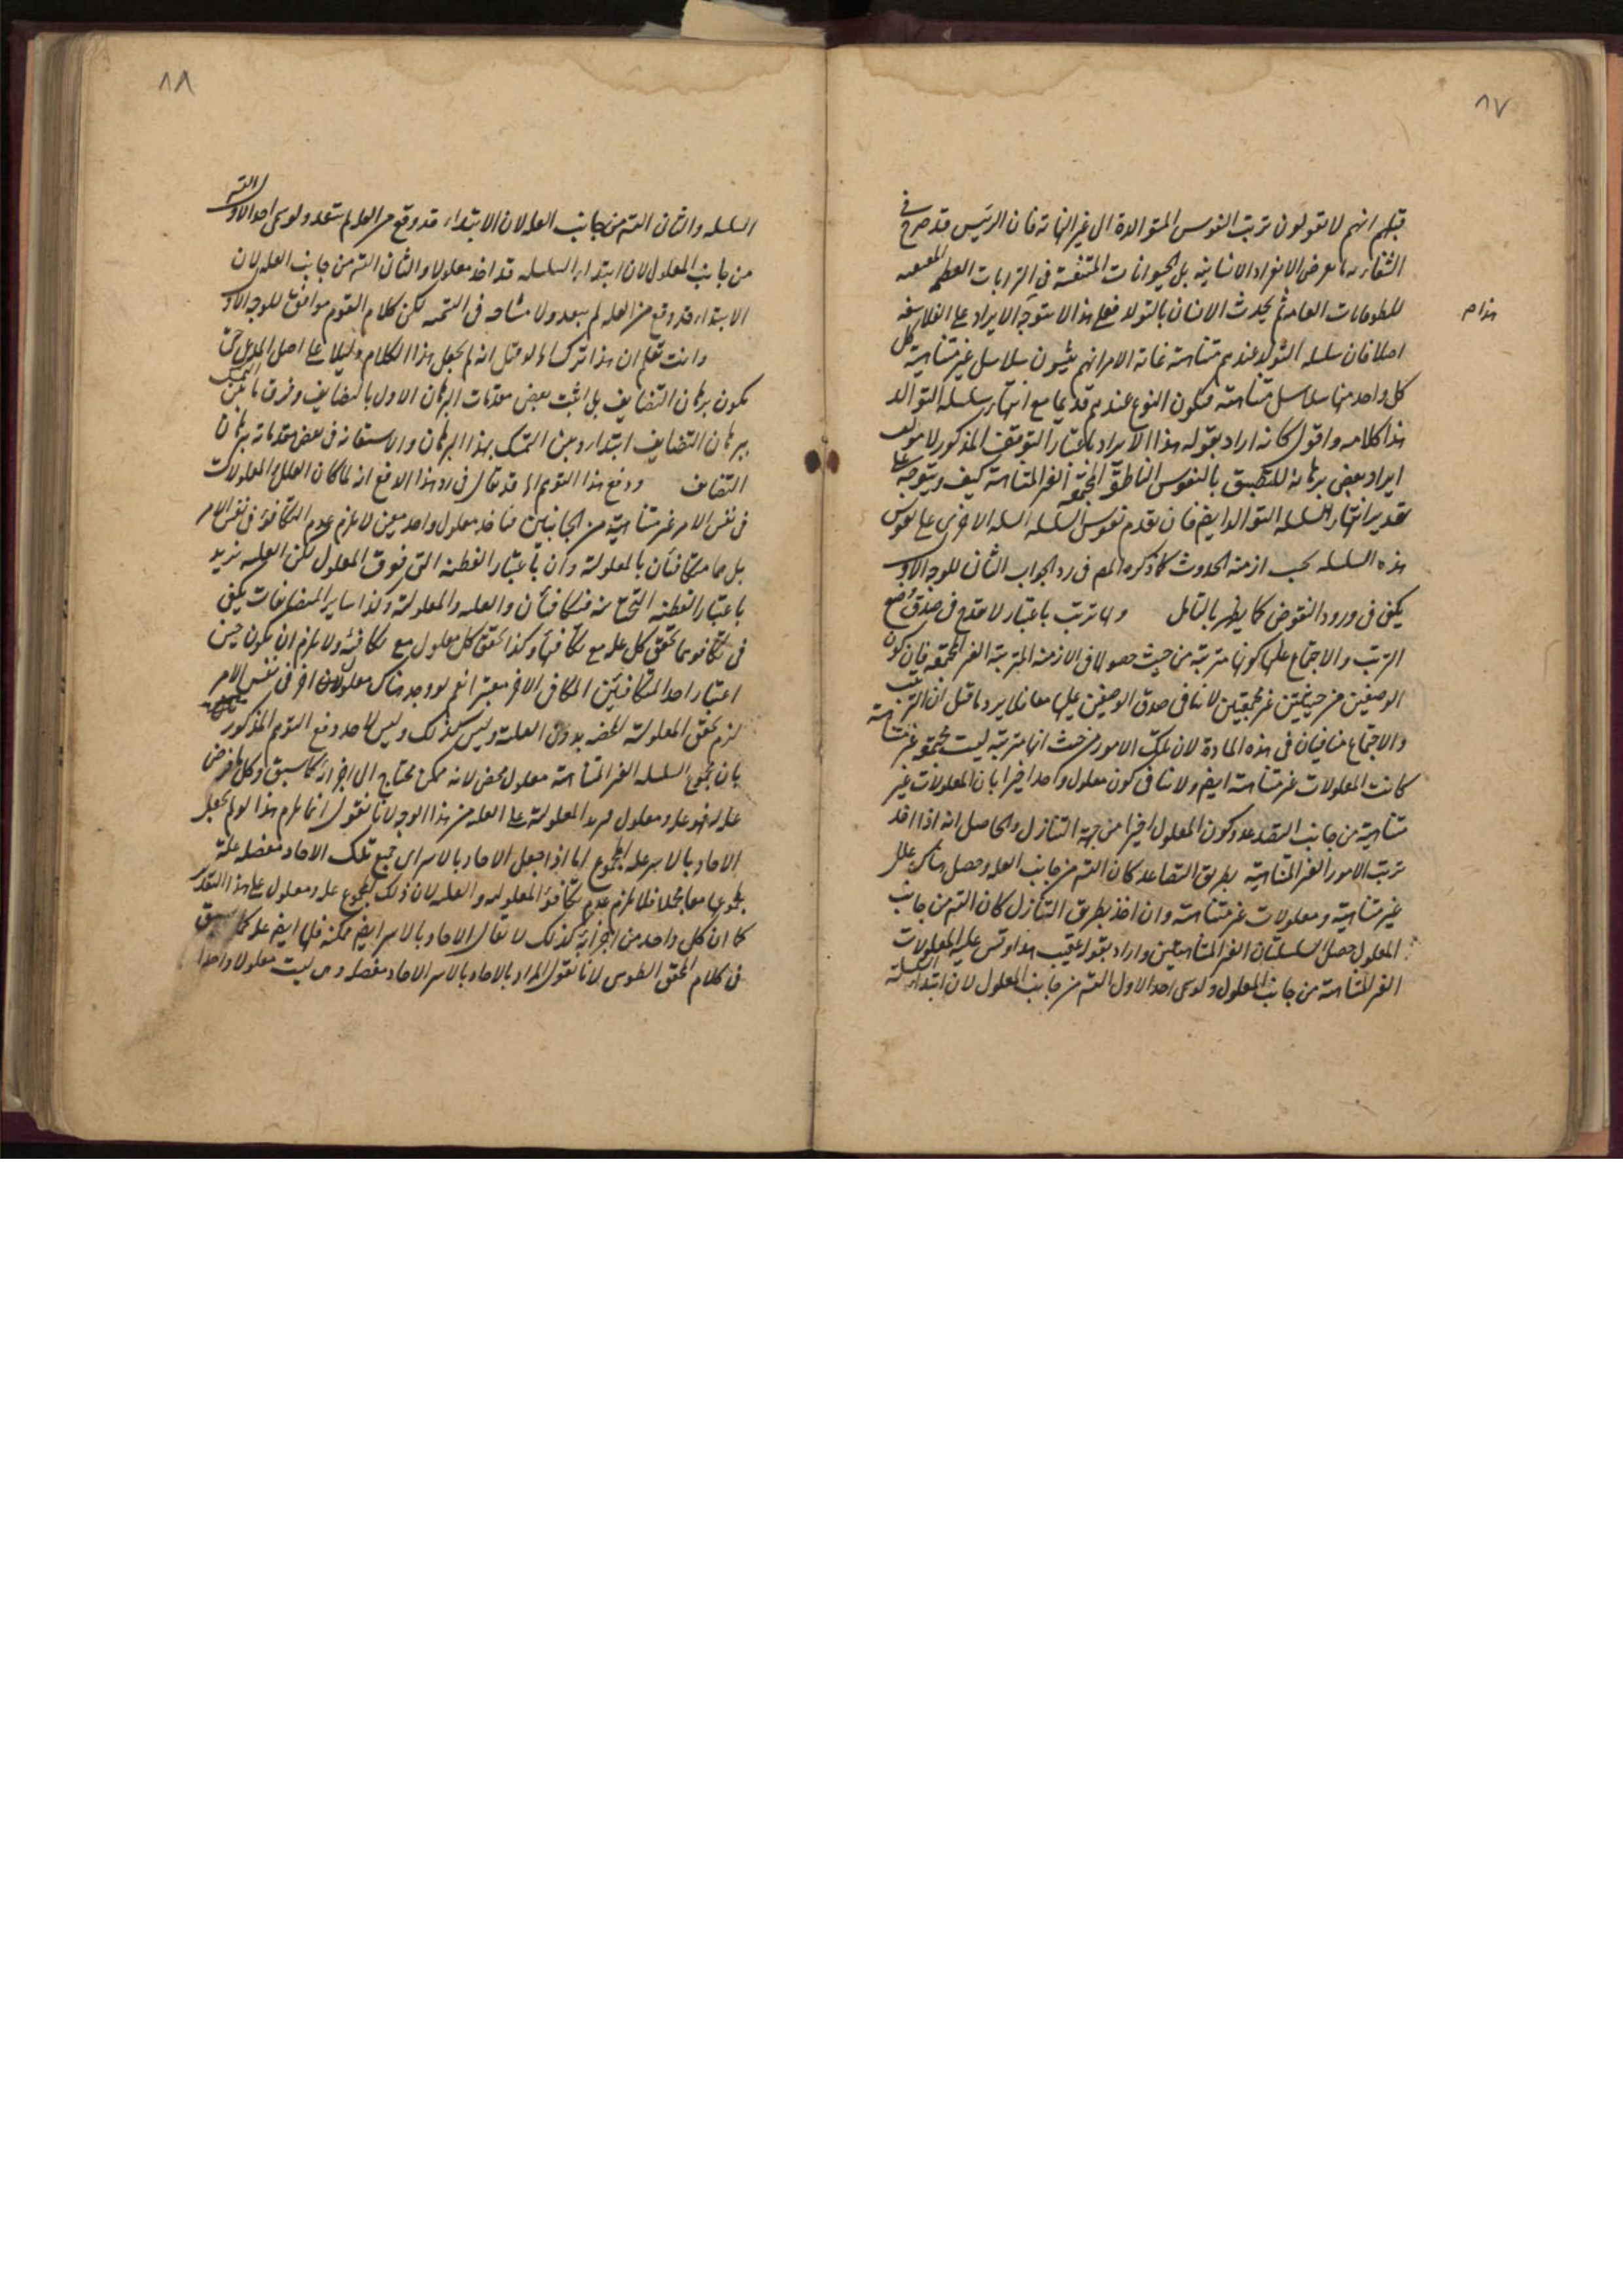 ٨٧
قبلهم انهم لا يقولون بترتب النفوس المتوالدة الى غير النهاية فان الرئيس قد صرح في
الشفاء بانه يعرض الانفراد الانسانية بل الحيوانات المتنفسة في القرابات العظيمة
للطوفانات العامة ثم يحدث الانسان بالتولد فعلى هذا لا يتوجه الايراد على الفلاسفة
هذا م
اصلا فان سلسلة التوالد عندهم متناهية غاية الامر انهم يثبتون سلاسل غير متناهية كل
كل واحد منها سلاسل متناهية فيكون النوع عندهم قديما مع انتهاء سلسلة التوالد
هذا كلامه واقول كانه اراد بقوله هذا الايراد باعتبار التوقف المذكور لا
ايراد بعض برهانه للتطبيق بالنفوس الناطقة المجتمعة الغير المتناهية كيف ويتوجه على
تقدير انتهاء سلسلة التوالد ايضا فان تقدم نفوس السلسلة الاخرى على نفوس
هذه السلسلة بحسب ازمنة الحدوث كما ذكره المص في رد الجواب الثاني للوجه الاول
يكفي في ورود النقوض كما يظهر بالتامل ولها ترتب باعتبار لا يقدح في صدق
الترتب والاجتماع عليها كونها مترتبة من حيث حصولها في الازمنة المترتبة الغير المجتمعة فان كون
الوصفين من حيثيتين غير مجتمعتين لا ينافي صدق الوصفين عليها معا فلا يرد ما قيل ان الترتب
والاجتماع متنافيان في هذه المادة لان تلك الامور من حيث انها مترتبة ليست مجتمعة غير متناهية
كانت المعلولات غير متناهية ايضا ولا ينافي كون معلول واحد اخيرا بان المعلولات غير
متناهية من جانب التصاعد وكون المعلول اخيرا من جهة التنازل والحاصل انه اذا اخذ
ترتب الامور الغير المتناهية بطريق التصاعد كان التم من جانب العلة وحصل هناك علل
غير متناهية ومعلولات غير متناهية وان اخذ بطريق التنازل كان التم من جانب
المعلول حصل السلسلتان الغير المتناهيتين واراد بقوله عقيب هذا وقس عليه المعلولات
الغير المتناهية من جانب المعلول ولو سمي احد الاول التم من جانب المعلول لان ابتداء السلسلة
٨٨
السلسلة والثاني التم من جانب العلة لان الابتداء قد وقع من العلة لم يبعد ولو سمي احد الاول التم
من جانب المعلول لان ابتداء السلسلة قد اخذ معلولا والثاني التم من جانب العلة لان
الابتداء قد وقع من العلة لم يبعد ولا مشاحة في التسمية لكن كلام القوم موافق للوجه الاول
وانت تعلم ان هذا انما لو قيل انه لم يجعل هذا الكلام دليلا على اصل المدعى حتى
يكون برهان التضايف بل اثبت بعض مقدمات البرهان الاول بالتضايف وفرق ما بين التمسك
ببرهان التضايف ابتداء وبين التمسك بهذا البرهان والاستعانة في بعض مقدماته ببرهان
التضايف ودفع هذا التوهم انه قد يقال في رد هذا الدفع انه لما كان العلل والمعلولات
في نفس الامر غير متناهية من الجانبين فاخذ معلول واحد معين لا يلزم عدم التكافؤ في نفس الامر
بل هما متكافئان بالمعلولية وان باعتبار القطعة التي فوق المعلول لكن العلة يزيد
باعتبار القطعة التحتانية فتكافيان والعلة والمعلولية وكذا ساير المتضايفات يكفي
في تكافؤهما تحقق كل علة مع مكافيها وكذا تحقق كل معلول مع مكافيه ولا يلزم ان يكون حين
اعتبار احد المتكافئين المكافي الاخر معتبرا نعم لو وجد هناك معلولان اخر في نفس الامر
لزم تحقق المعلولية المحضة بدون العلية وليس كذلك وليس لاحد دفع التوهم المذكور
بان مجموع السلسلة الغير المتناهية معلول محض لانه ممكن محتاج الى اجزائه كما سبق وكل ما فرض
علة فهو علة ومعلول فيزيد المعلولية على العلة من هذا الوجه لانا نقول انما يلزم هذا لو لم يجعل
الاحاد بالاسر علة المجموع اما اذا جعل الاحاد بالاسر اي جميع تلك الاحاد مفصلة علة
بمجموعها معا مجملا فلا يلزم عدم تكافؤ المعلولية والعلة لان ذلك المجموع علة ومعلول على هذا التقدير
كما ان كل واحد من اجزائه كذلك لا يقال الاحاد بالاسر ايضا ممكنة فلها ايضا علة كما سبق
في كلام المحقق الطوسي لانا نقول المراد بالاحاد بالاسر الاحاد مفصلة وهي ليست معلولا واحدا